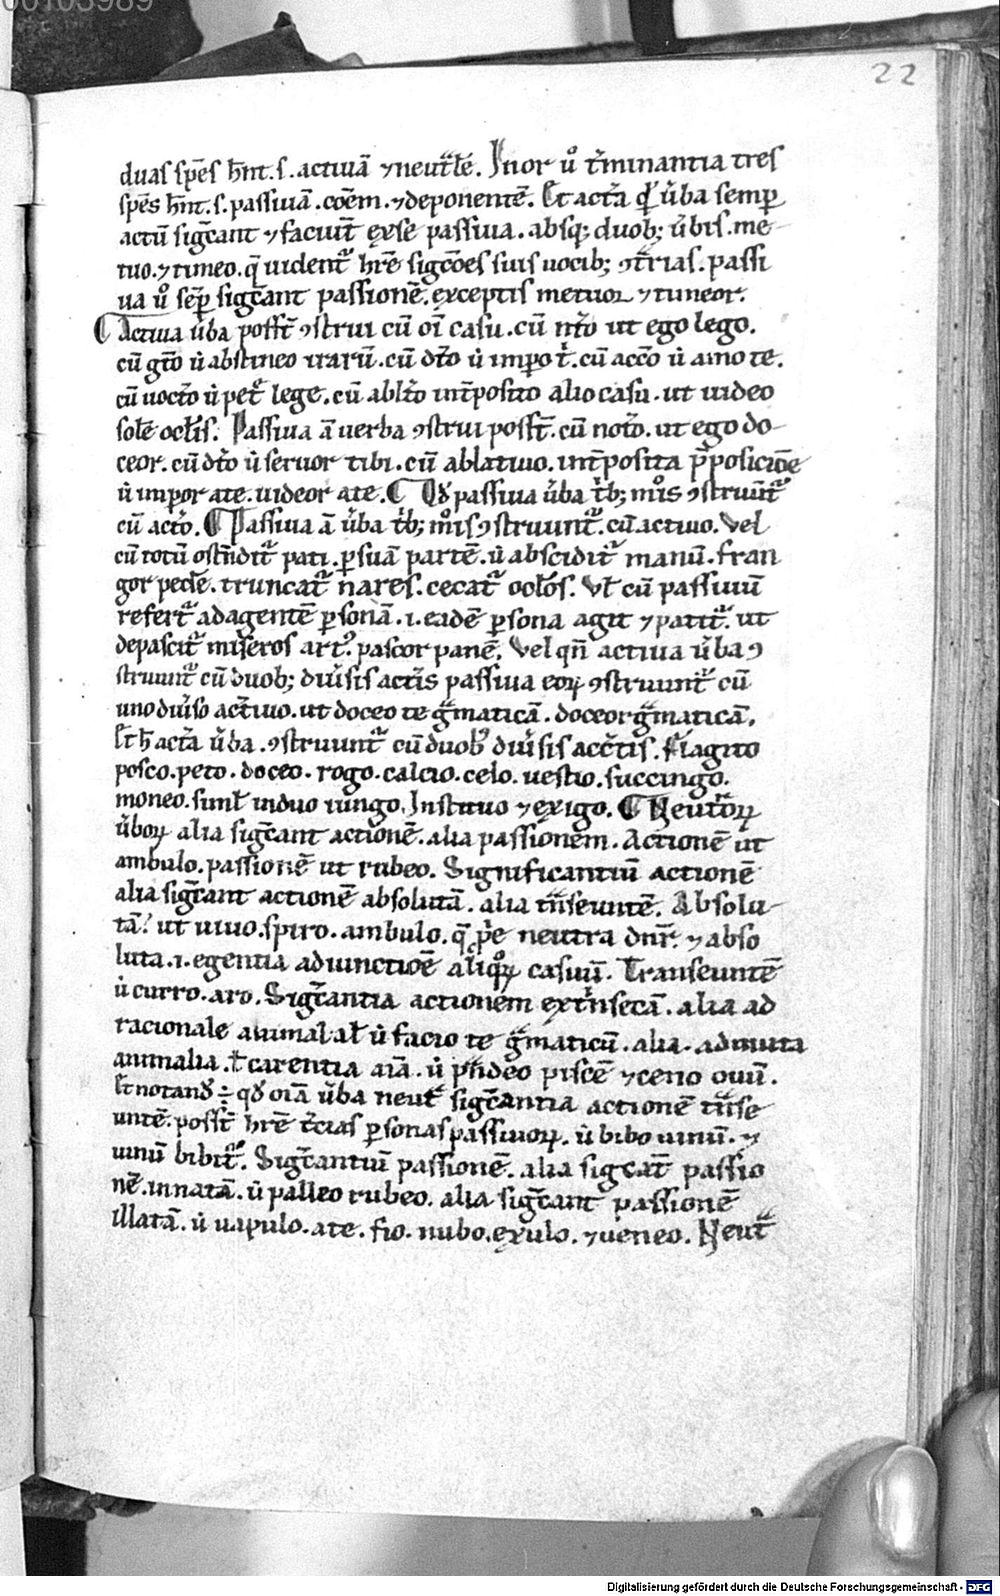 00103989
22
duas spēs hn̄t .s. activā ⁊ neut͛lē. In or ů t͛minantia tres
spēs hn̄t .s. passivā . coēm . ⁊ deponentē. Et actīa qͥ ůba semp̲
actū sig̅cant ⁊ faciūt ex se passiua . absq; duob; ůbis . me-
tuo . ⁊ timeo . q̄ uident͛ hr̄e sig̅cōes suis uocib; ꝯt͛rias . passi
ua ů semp̲ sig̅cant passionē . exceptis metuor ⁊ timeor.
Actiua ůba posst̄ ꝯstrui cū oī casu . cū nt̄o ut ego lego.
cū gt̄o ů abstineo irarū . cū dt̄o ů imp̲o t͛ . cū accō ů amo te.
cū uoct̄o ů pet͛ lege . cū ablt̄o int͛posito alio casu . ut uideo
solē oclīs . Passiua ā uerba ꝯstrui posst̄ . cū not̄o . ut ego do-
ceor . cū dt̄o ů seruor tibi . cū ablatiuo . int͛posita p̄posicioē
ů imp̲or a te . uideor a te . Qđ passiua ůba t͛b; mōis ꝯstruūt͛
cū act̄o . Passiua ā ůba t͛b; mōis ꝯstruunt͛ . cū actiuo . Vel
cū totū ostn̄dit͛ pati . p̲ suā partē . ů abscidit͛ manū . fran
gor pedē . truncat͛ nares . cecat͛ oclōs . Vł cū passiuū
refert͛ ad agentē p̲sonā .i. eadē p̲sona agit ⁊ patit͛ . ut
depascit͛ miseros art⁹ . pascor panē . Vel qn̄ actiua ůba ꝯ
struunt͛ cū duob; diůsis act̄is passiua eoꝝ ꝯstruunt͛ cū
uno diůso act̄iuo . ut doceo te g͛maticā . doceor g͛maticā,
Et h̄ act̄a ůba . ꝯstruunt͛ cū duob⁹ diůsis acc̄tis . Flagito
posco . peto . doceo . rogo . calcio . celo . uestio . succingo.
moneo . simł induo iungo . Instituo ⁊ exigo . Neut͛oꝝ
ůboꝝ alia sig̅cant actionē . alia passionem . Actionē ut
ambulo . passionē ut rubeo . Significantiū actionē
alia sig̅cant actionē absolutā . alia t͛nseuntē . Absolu-
tā . ut uiuo . spiro . ambulo . q̄ p͛e neutra dnr̄ . ⁊ abso
luta .i. egentia adiunctiōe aliqͦꝝ casuū . Transeuntē
ů curro . aro . Sig̅cantia actionem ext͛nsecā . alia ad
racionale animal ał ů facio te g͛maticū . alia . ad muta
animalia . ł carentia aīā . ů p̄hdeo piscē ⁊ ceno ouū .
Et notandū ÷ qđ oīa ůba neut͛ sig̅cantia actionē t͛nse
untē . posst̄ hr̄e t͛cias p̲sonas passiuoꝝ . ů bibo uinū . ⁊
uinū bibit͛ . Sig̅cantiū passionē . alia sig̅cāt passio
nē . innatā . ů palleo rubeo . alia sig̅cant passionē
illatā . ů uapulo . a te . fio . nubo . exulo . ⁊ ueneo . Neut͛
Digitalisierung gefördert durch die Deutsche Forschungsgemeinschaft - DFG